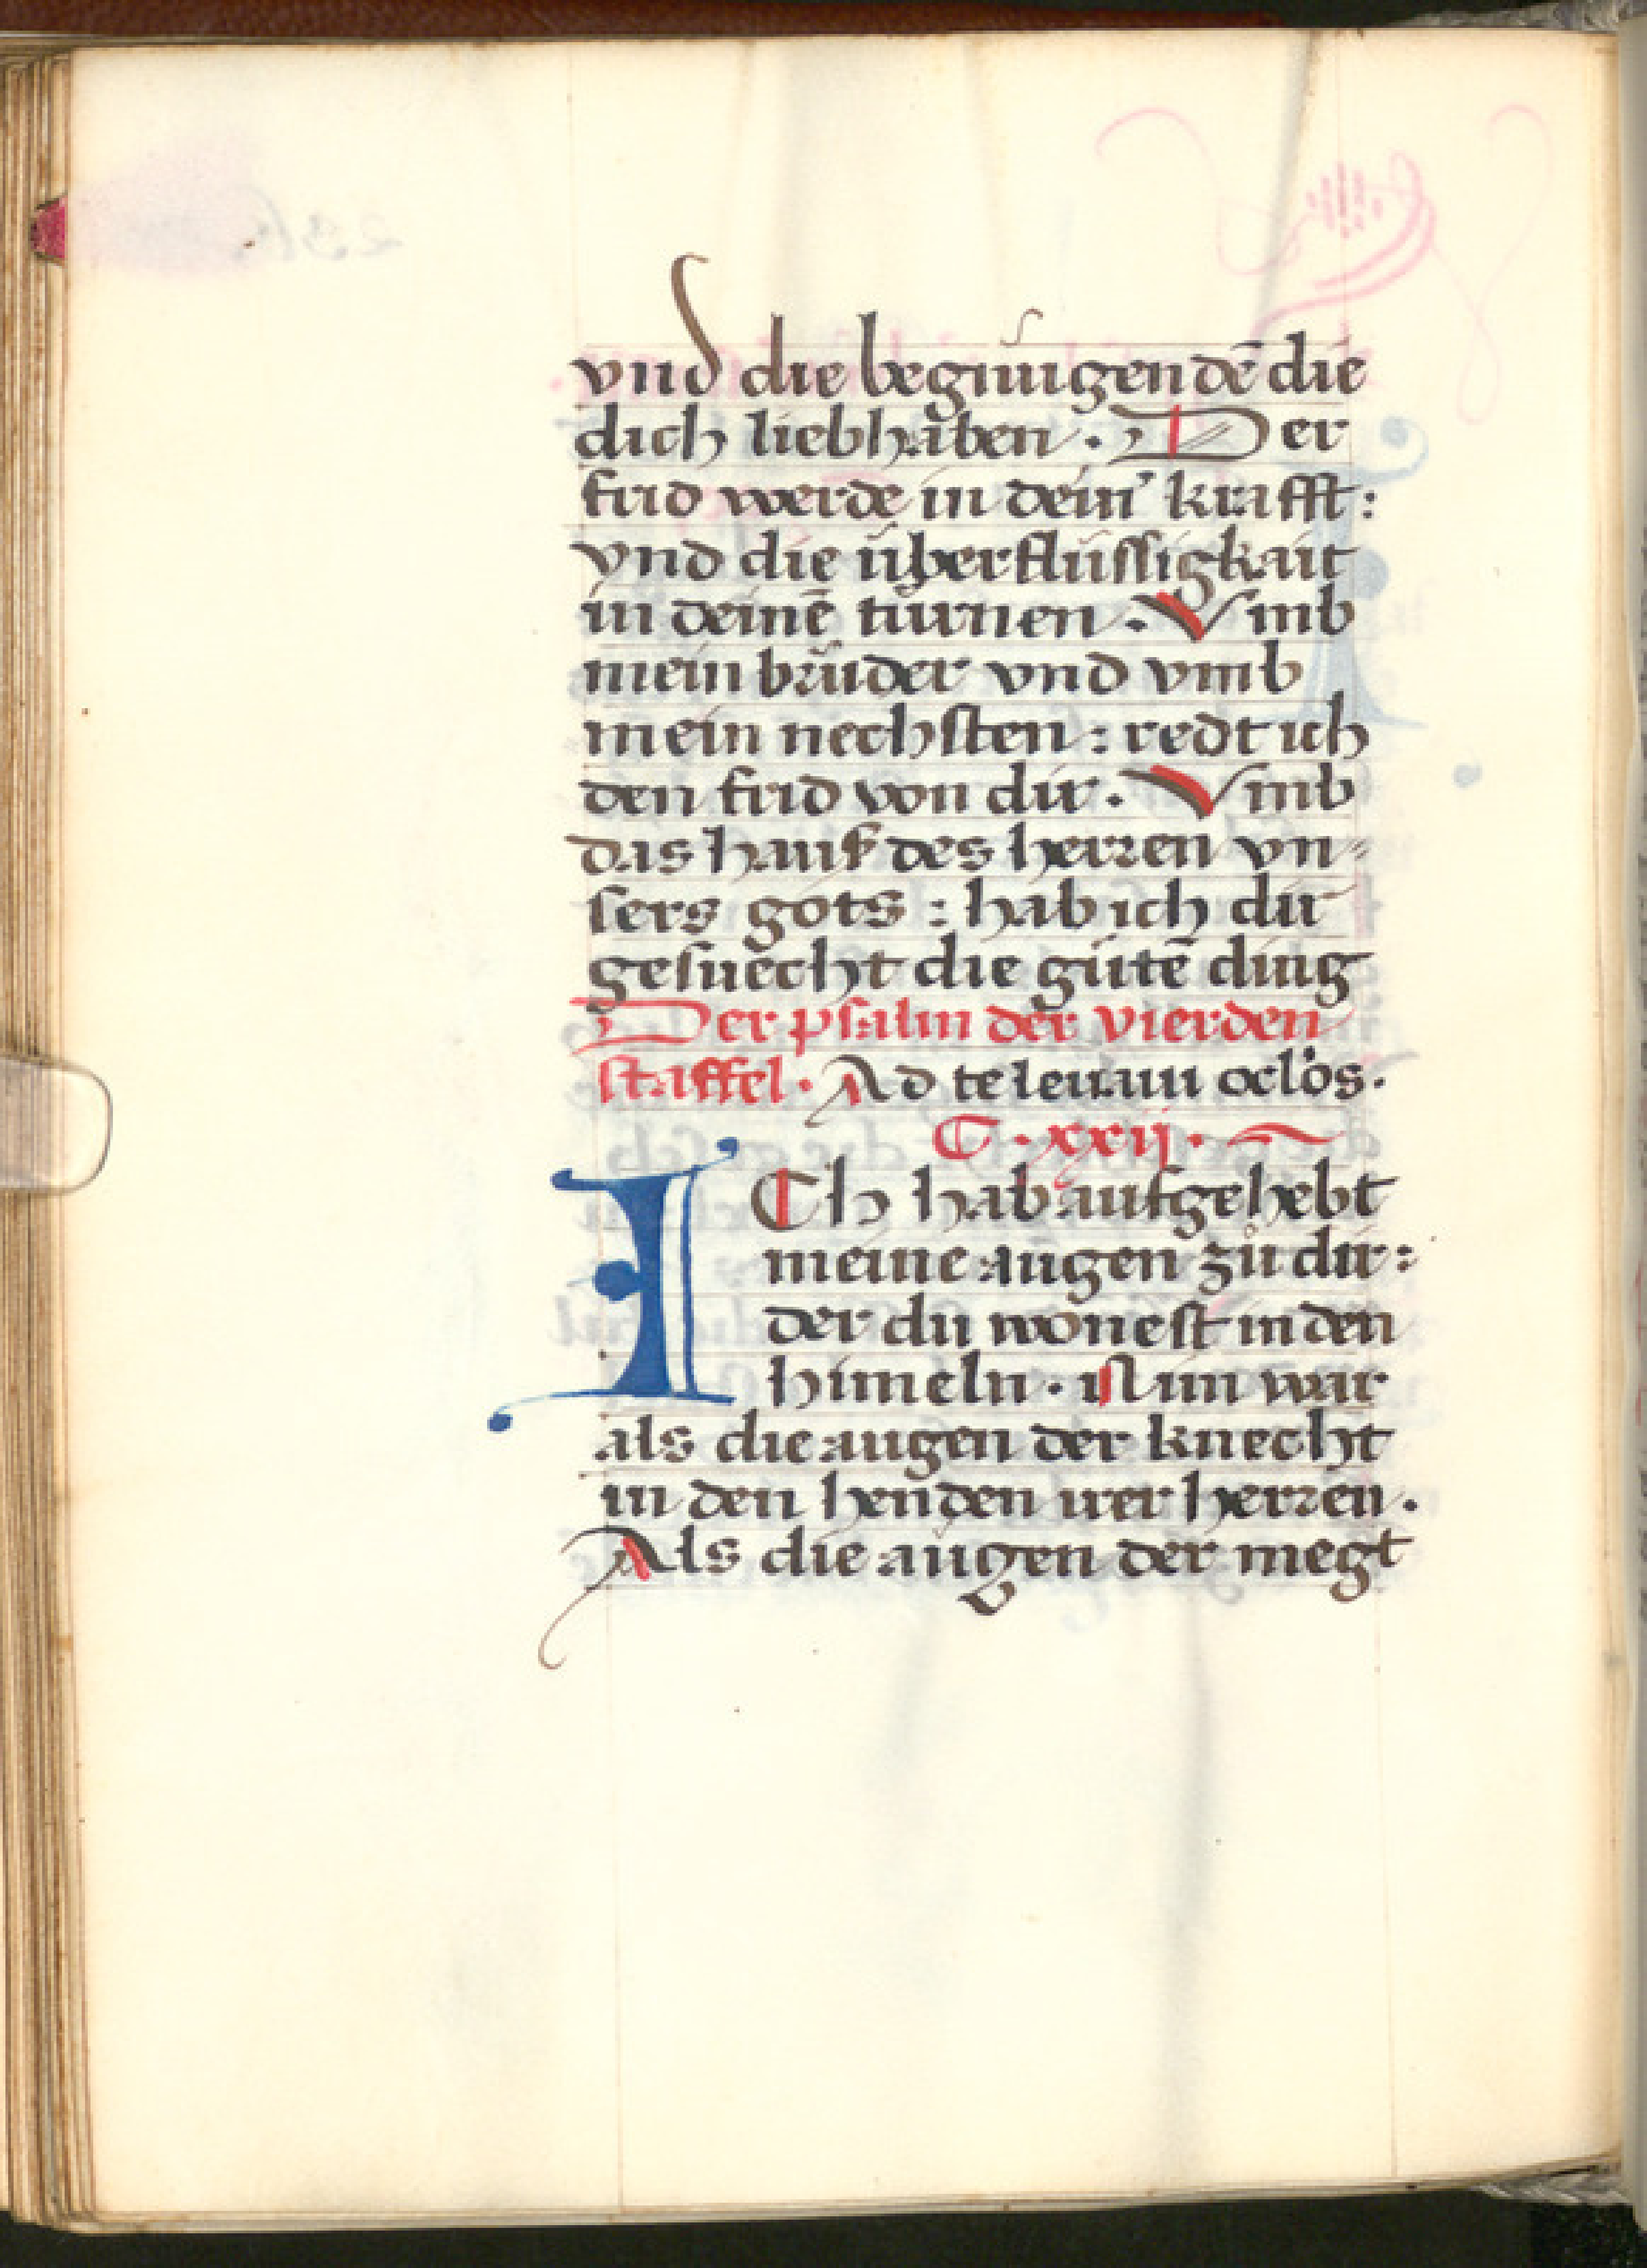 vnd die begnŭgen dē die
dich liebhaben . Der
frid werde in dein' krafft :
vnd die überflüssigkait
in deinē türnen . Vmb
mein brüder vnd vmb
mein nechsten : redt ich
den frid von dir . Vmb
das hauß des herren vn=
sers gots : hab ich dir
gesuecht die gutē ding
Der psalm der vierden
staffel . Ad te leuaui oclos .
C . xxij .
ICh hab aufgehebt
meine augen zů dir :
der du wonest in den
himeln . Nim war
als die augen der knecht
in den henden irer herren .
Als die augen der megt